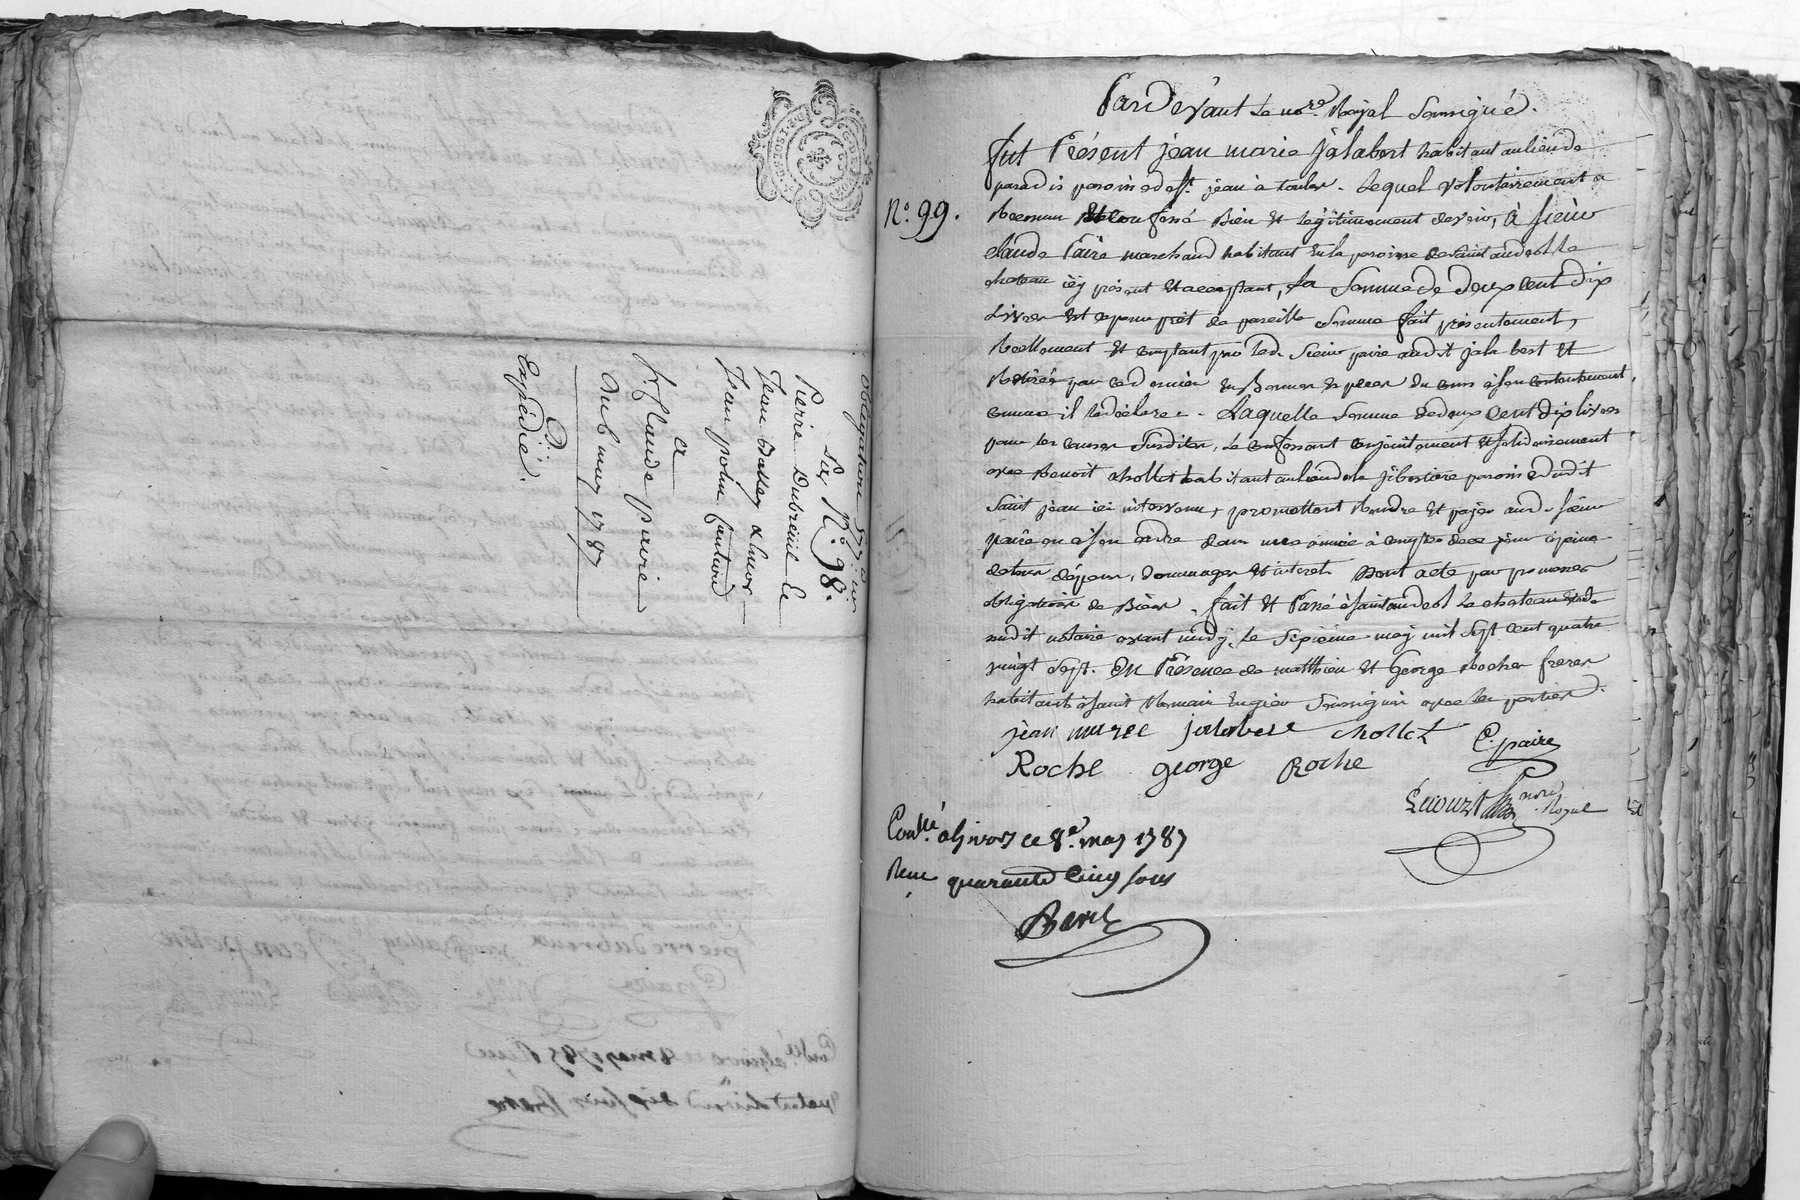 obligation
Sur N.º 98.
Pierre Dubreuil Le
Jean balley &
Jean polin
a
Sr. Claude paire
Du 8 may 1787
D.
Expédié.
N.º 99.
Pardevant Le nore. Royal Soussigné.
fut Présent jean marie jalabert habitant au lieu de
paradis paroisse de st. jean à toulas. Lequel volontairement a
Reconnu & confessé Bien et légitimement devoir, à sieur
claude Paire marchand habitant en la paroisse de saint andeol le
chateau icy présent et acceptant, La Somme de deux cent dix
Livres et ce pour prêt de pareille somme fait présentement,
Reellement et comptant par led. sieur paire audit jalabert et
Retirée par ce dernier en Bonnes espèces du cours à son contentement,
comme il le déclare. Laquelle somme de deux cent dix livres
pour les causes susdites, le confessant conjointement et solidairement
avec Benoit chollet habitant au lieu de la paroisse dudit
saint jean ici intervenu, promettent Rendre et payer aud. sieur
paire ou à son ordre dans une année à compter de ce jour à peine
de tous dépens, dommages et interet. Dont acte par promesses
obligations de Biens. fait et Passé à saint andeol le chateau etude
dudit notaire avant midy, le septieme may mil sept cent quatre
vingt sept. En Présence de matthieu et George Roche freres
habitants à saint Romain en gier soussignés avec les parties.
jean marie jalabert chollet C. paire
Roche george Roche
nore. Royal
Conllé. a givors ce 8e. may 1787
Reçu quarante cinq sous